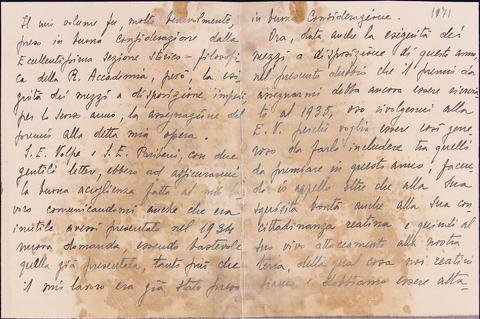 Il mio volume fu, molto benevolmente,
preso in buona considerazione dalla
Eccellentissima Sezione Storico-filosofi
ca della R. Accademia, però, la esi
guità dei mezzi a disposizione impedì
per lo scorso anno, la assegnazione del
premio alla detta mia opera.
S. E. Volpe e S. E. Paribeni, con due
gentili lettere, ebbero ad assicurarmi
la buona accoglienza fatta al mio la
voro comunicandomi anche che era
inutile avessi presentato nel 1934
nuova domanda, essendo bastevole
quella già presentata, tanto più che
il mio lavoro era già stato preso
in buona Considerazione.
1971
Ora, data anche la esiguità dei
mezzi a disposizione di questo anno,
nel presente dubbio che il premio da
assegnarmi debba ancora essere
to al 1935, oso rivolgermi alla
E. V. perché voglia essere così gene
roso da farlo includere tra quelli
da premiare in questo anno, facen
do io appello oltre che alla sua
squisita bontà anche alla sua con
cittadinanza reatina e quindi al
suo vivo attaccamento alla nostra
terra, della qual cosa noi reatini
siamo e dobbiamo essere